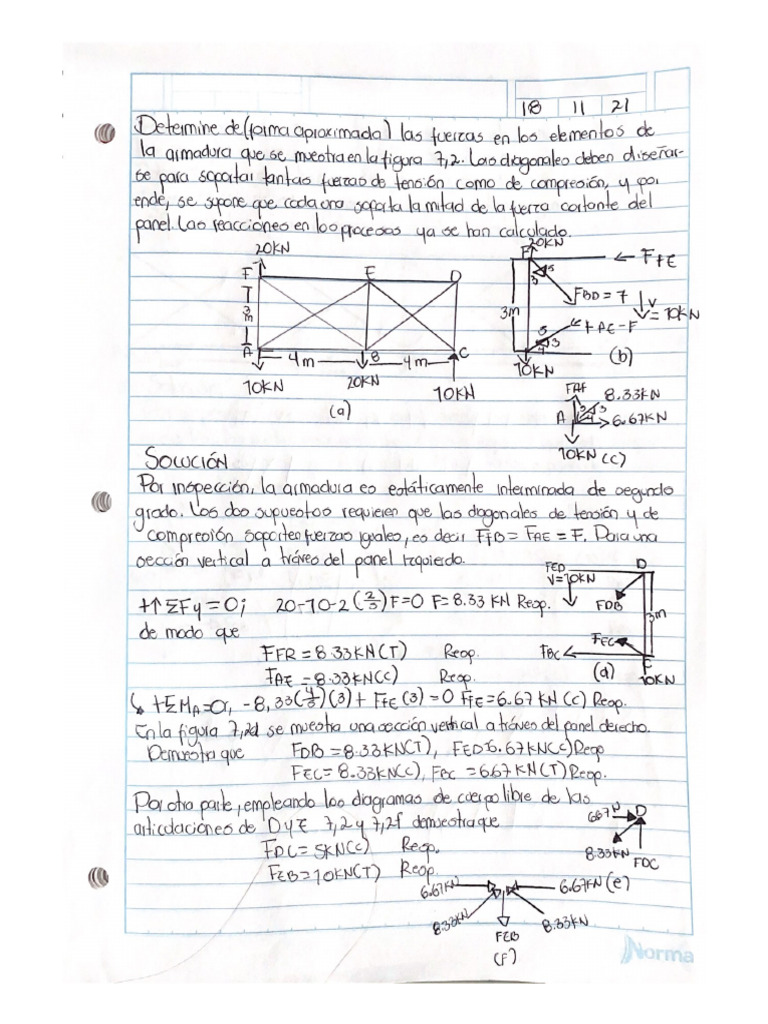 18 11 21
Determine de (forma aproximada) las fuerzas en los elementos de
la armadura que se muestra en la figura 7,2. Las diagonales deben diseñar-
se para soportar tantas fuerzas de tensión como de compresión, y por
ende, se supone que cada una soporta la mitad de la fuerza cortante del
panel. Las reacciones en los procesos ya se han calculado.
20KN
F E D
3m
A 4m B 4m C
10KN 20KN 10KN
(a)
F 20KN
FFE
5
3
FBD = 7 V = 10KN
3m
FAE-F
5 3
4
10KN (b)
FAF 8.33KN
A 5 3 4 6.67KN
10KN (c)
SOLUCIÓN
Por inspección, la armadura es estáticamente interminada de segundo
grado. Los dos supuestos requieren que las diagonales de tensión y de
compresión soporten fuerzas iguales, es decir FFB = FAE = F. Para una
sección vertical a tráves del panel Izquierdo.
FED D
V=10KN
FDB
3m
FEC
FBC F
(d) 10KN
+↑ΣFy=0; 20-10-2(3/5)F=0 F=8.33 KN Resp.
de modo que
FFR = 8.33KN(T) Resp.
FAE = 8.33KN(C) Resp.
↳ +ΣMA=0, -8,33(4/5)(3)+FFE(3)=0 FFE=6.67 KN (C) Resp.
En la figura 7,2d se muestra una sección vertical a tráves del panel derecho.
Demuestra que FDB=8.33KN(T), FED=6.67KN(C) Resp
FEC=8.33KN(C), FBC=6.67KN(T) Resp.
Por otra parte, empleando los diagramas de cuerpo libre de las
articulaciones de D y E 7,2 y 7,2f demuestra que
FDC= 5KN(C) Resp.
FEB=10KN(T) Resp.
6.67N D
8.33KN
FDC
(e)
6.67KN 6.67KN
8.33KN 8.33KN
FEB
(F)
Norma